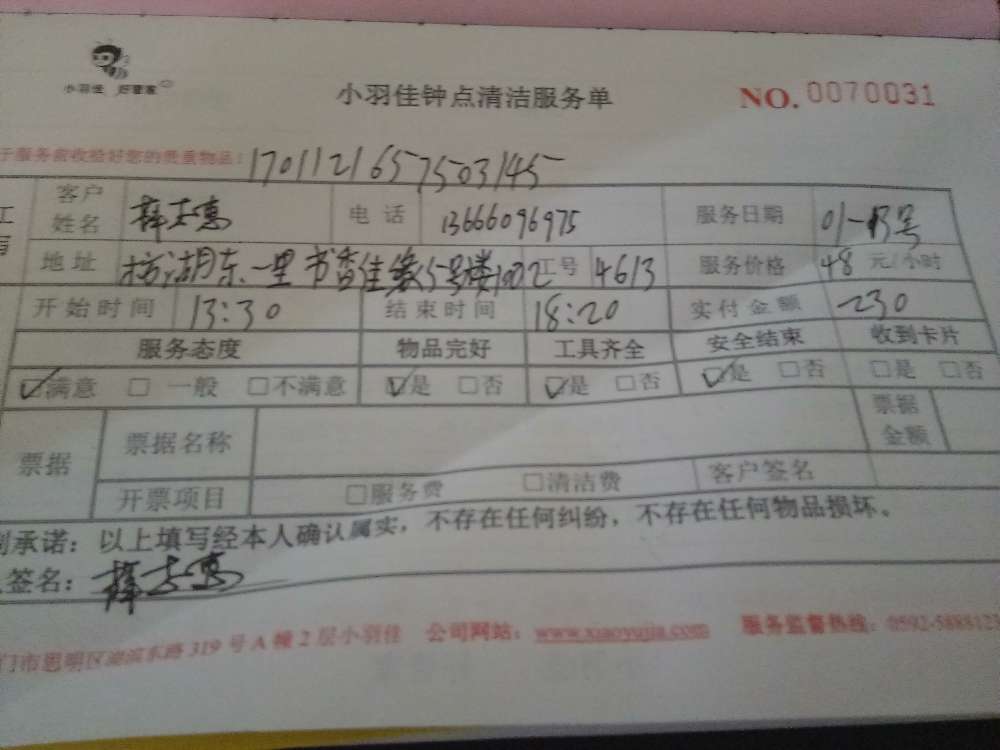 小羽佳 好管家
小羽佳钟点清洁服务单
NO. 0070031
于服务前收拾好您的贵重物品: 1701121657503145
客户姓名 志惠 电话 13666096975 服务日期 01-13号
地址 湖东一里书香佳缘5号楼1002 工号 4613 服务价格 48 元/小时
开始时间 13:30 结束时间 18:20 实付金额 230
服务态度 物品完好 工具齐全 安全结束 收到卡片
☑满意 □一般 □不满意 ☑是 □否 ☑是 □否 ☑是 □否 □是 □否
票据 票据名称 票据金额
开票项目 □服务费 □清洁费 客户签名
承诺：以上填写经本人确认属实，不存在任何纠纷，不存在任何物品损坏。
签名： 志惠
门市思明区湖滨东路319号A幢2层小羽佳 公司网站：www.xiaoyujia.com 服务监督热线：0592-5888123